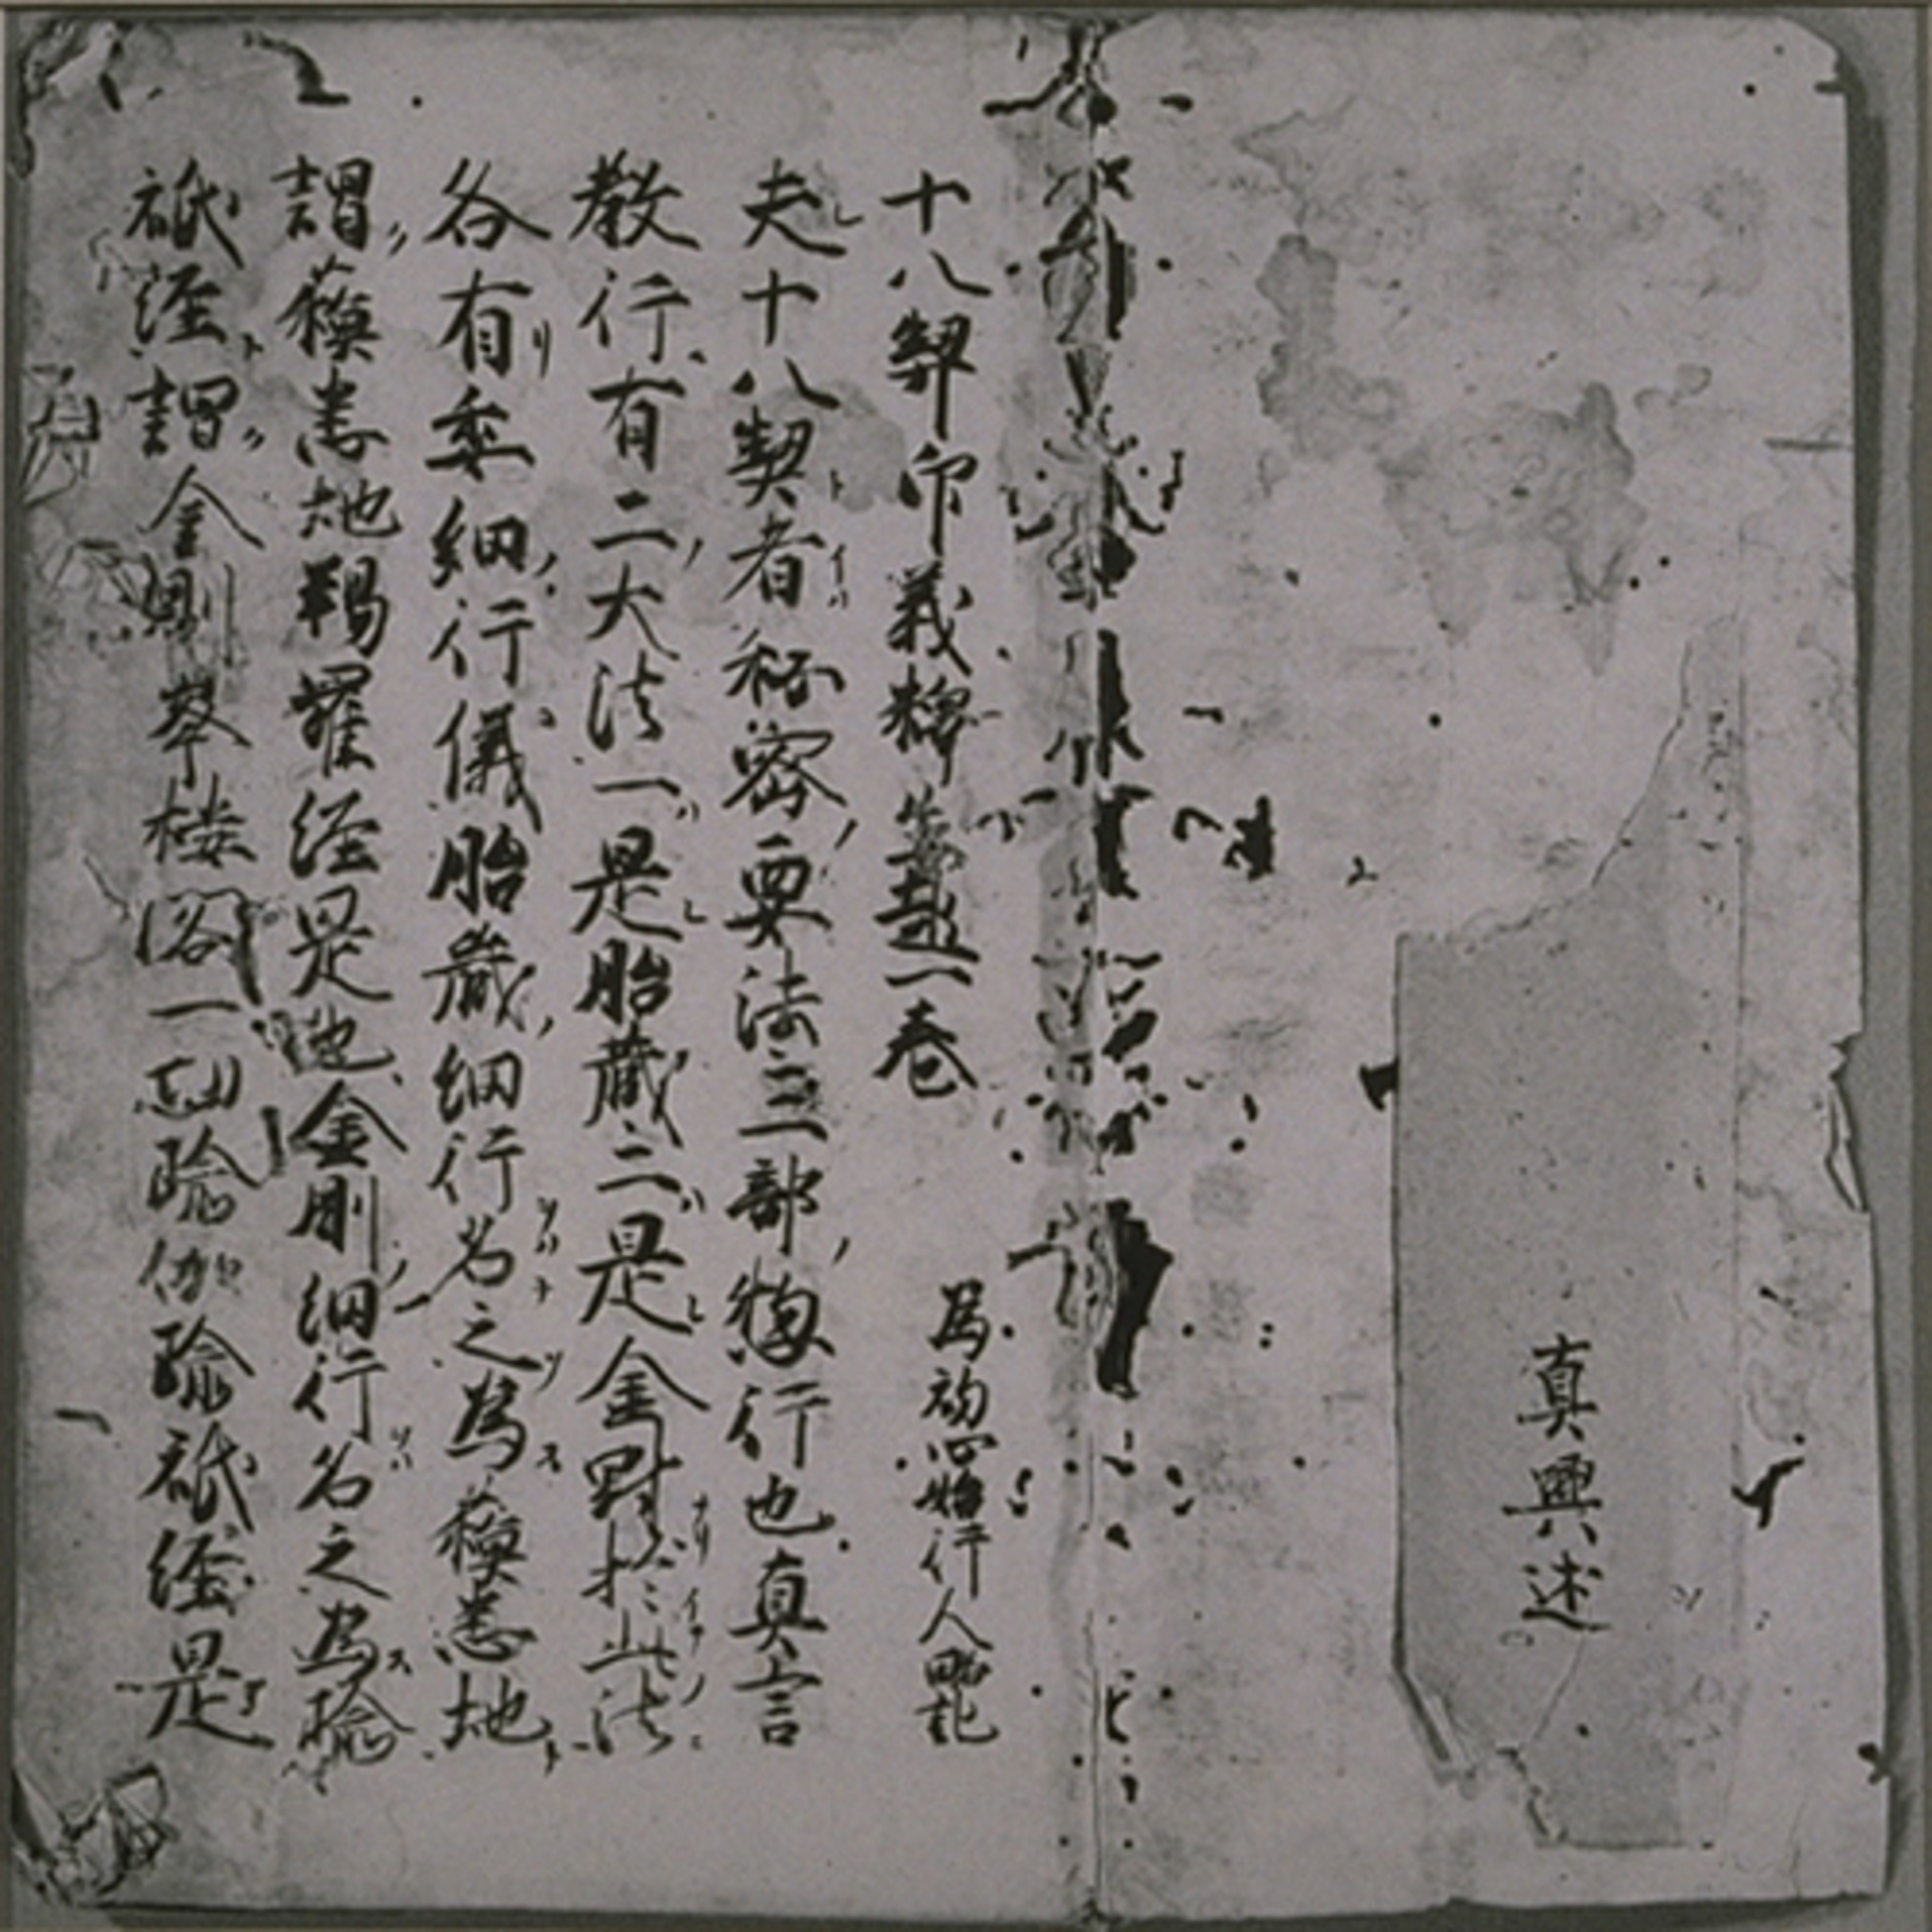 真興述
十八契印義釋生起一卷
為初心始行人略記
夫十八契者秘密要法三部惣行也真言
教行有二大法一是胎藏二是金剛於此法
各有委細行儀胎藏細行名之為蘇悉地
謂蘇悉地羯羅経是也金剛細行名之為瑜
祇経謂金剛峯楼閣一切瑜伽瑜祇経是